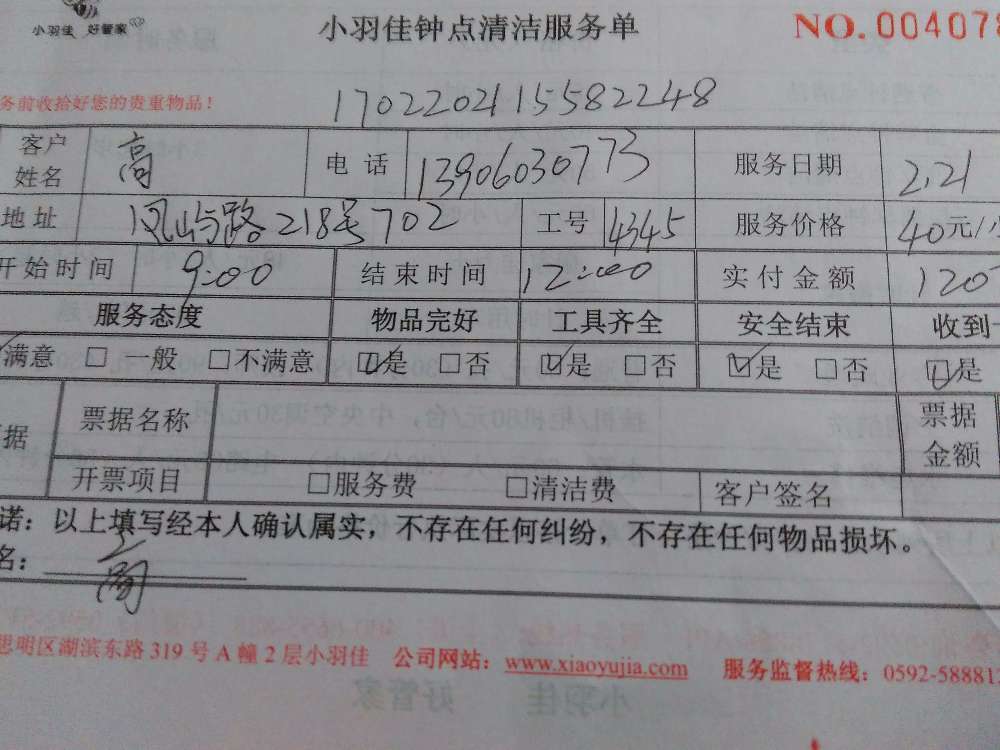 小羽佳 好管家
小羽佳钟点清洁服务单 NO. 004078
务前收拾好您的贵重物品！
1702202115582248
客户姓名 高 电话 13906030773 服务日期 2.21
地址 凤屿路218号702 工号 4345 服务价格 40元/
开始时间 9:00 结束时间 12:00 实付金额 120
服务态度 物品完好 工具齐全 安全结束 收到
满意 □一般 □不满意 ☑是 □否 ☑是 □否 ☑是 □否 ☑是
据 票据名称 票据金额
开票项目 □服务费 □清洁费 客户签名
诺：以上填写经本人确认属实，不存在任何纠纷，不存在任何物品损坏。
名： 高
思明区湖滨东路 319 号 A 幢 2 层小羽佳 公司网站：www.xiaoyujia.com 服务监督热线：0592-588812